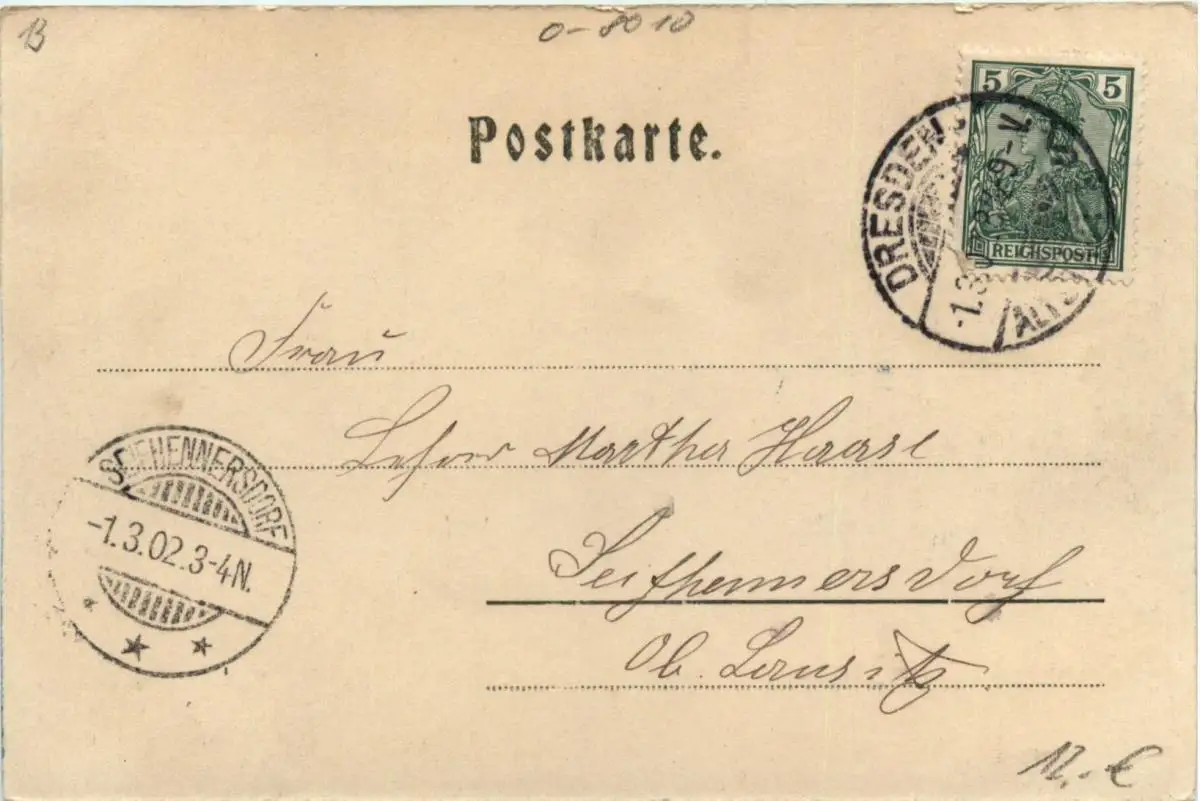 B
0-8010
Postkarte.
5 5
REICHSPOST
DRESDEN
ALTST
-1.3.02. 8-9-V.
Frau
Martha Haase
SEIFHENNERSDORF
-1.3.02.3-4N.
Seifhennersdorf
Ob. Lausitz
12,-€